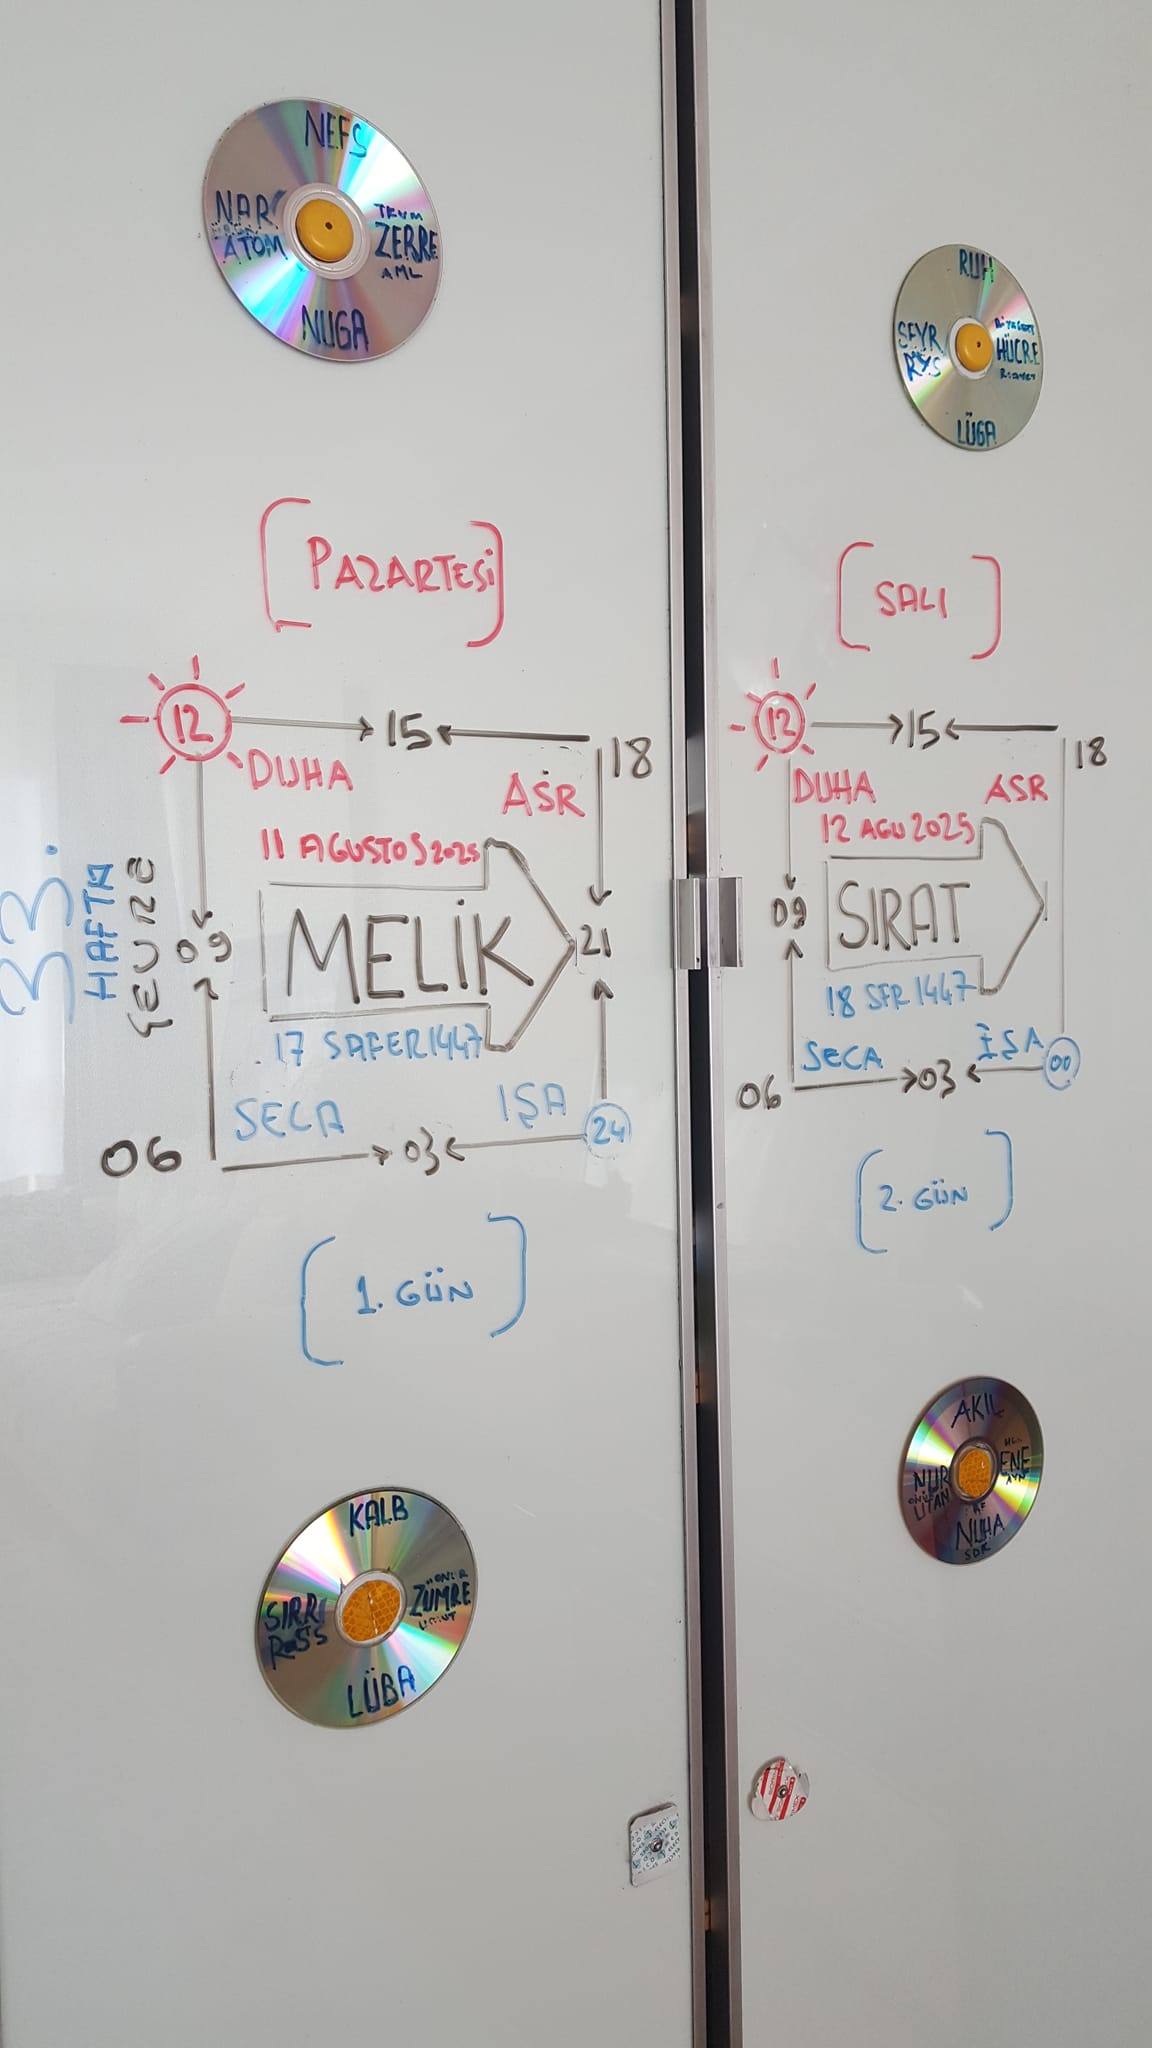 NEFS
NAR
ATOM
ZERRE
AML
NUGA
RUH
SEYR
RYS
HÜCRE
LÜGA
[PAZARTESİ]
[SALI]
12
15
18
DUHA
ASR
11 AGUSTOS 2025
33.
HAFTA
ÇEVRE
09
MELİK
21
17 SAFER 1447
SECA
IŞA
24
06
03
[1. GÜN]
12
15
18
DUHA
ASR
12 AGU 2025
09
SIRAT
18 SFR 1447
SECA
İŞA
00
06
03
[2. GÜN]
KALB
SIRRI
ZÜMRE
LÜBA
AKIL
NUR
ENE
NUHA
SDR